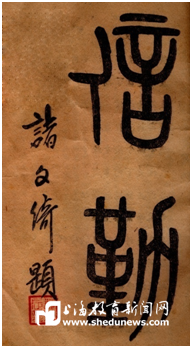 信勤
諸文綺題
上海教育新闻网
www.shedunews.com